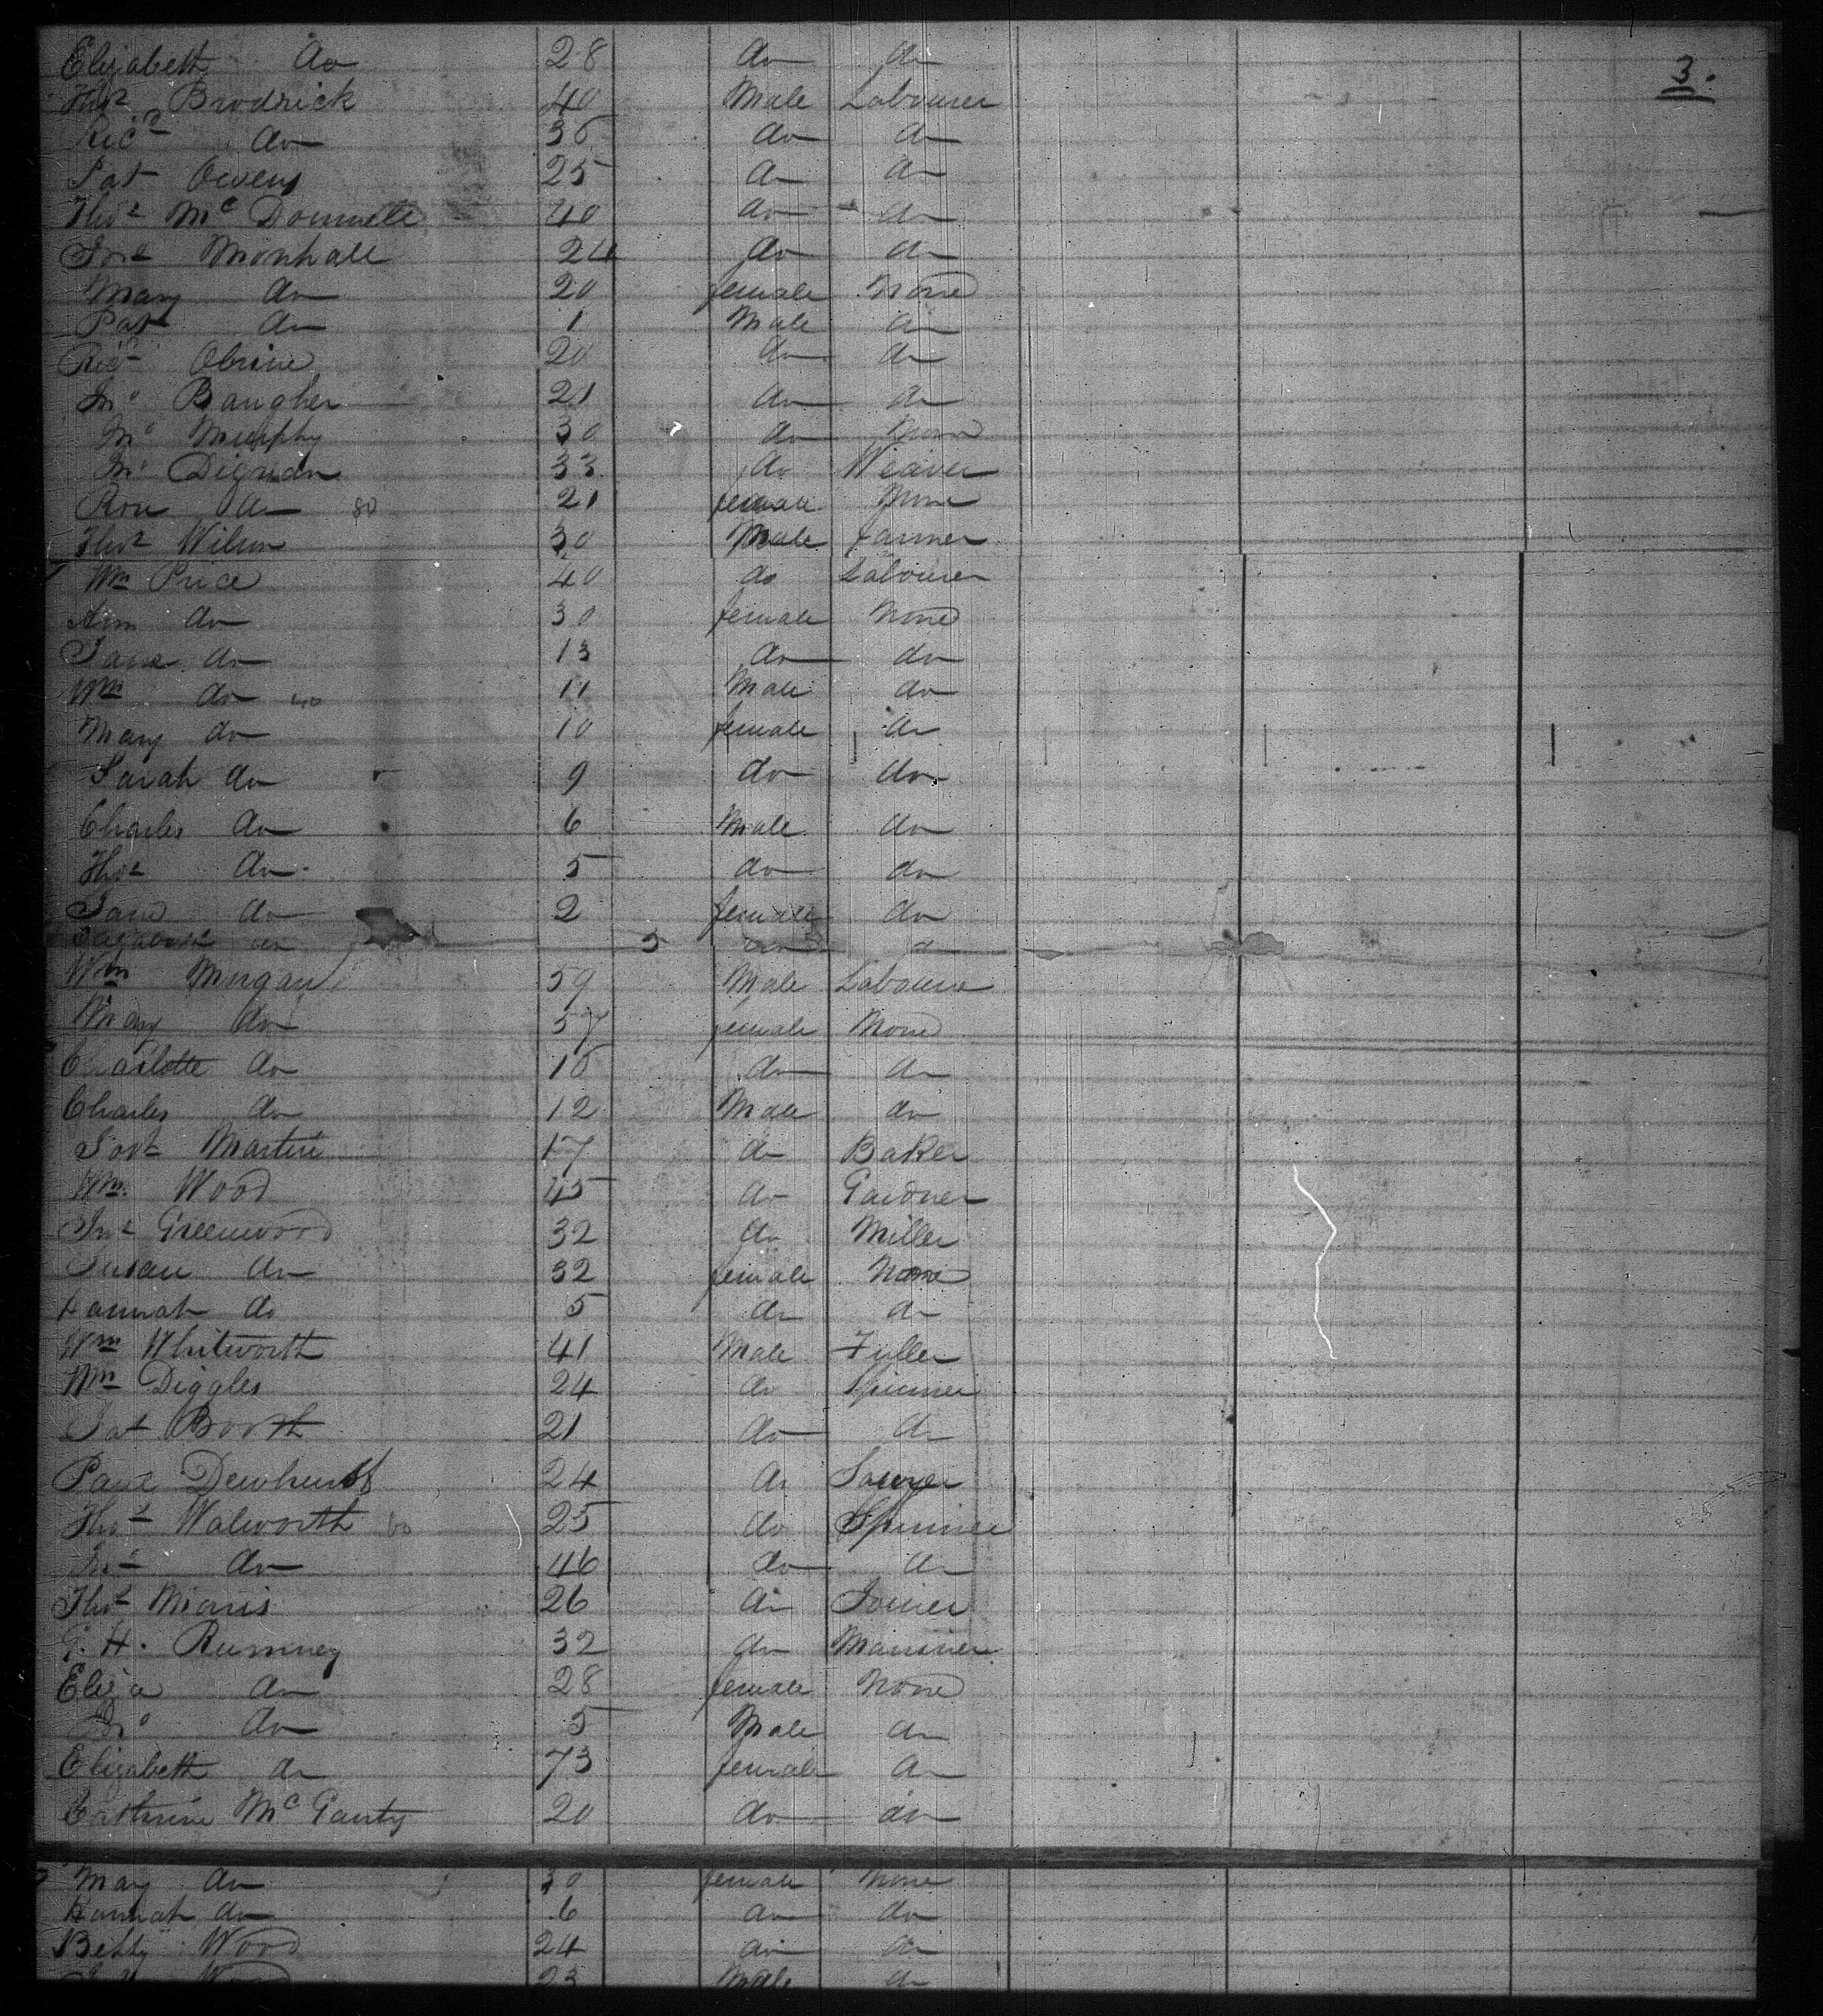 3.
Elizabeth do 28 do do
Thos Brodrick 40 Male Labourer
Ricd do 36 do do
Pat Owens 25 do do
Thos McDonnell 40 do do
Jno Monhall 24 do do
Mary do 20 female None
Pat do 1 Male do
Ricd Obrine 20 do do
Jno Baugher 21 do do
Jno Murphy 30 do None
Jno Dignan 33 do Weaver
Rose do 80 21 female None
Thos Wilson 30 Male Farmer
Wm Price 40 do Labourer
Ann do 30 female None
Jane do 13 do do
Wm do 40 11 Male do
Mary do 10 female do
Sarah do 9 do do
Charles do 6 Male do
Thos do 5 do do
Jane do 2 female do
Elizabeth do 5 do do
Wm Morgan 59 Male Labourer
Mary do 57 female None
Charlotte do 16 do do
Charles do 12 Male do
Martin 17 do Baker
Wm Wood 45 do Gardner
Jno Greenwood 32 do Miller
Susan do 32 female None
Hannah do 5 do do
Wm Whitworth 41 Male Fuller
Wm Diggles 24 do Spinner
Booth 21 do do
Dewhurst 24 do Sawyer
Thos Walworth 60 25 do Spinner
Jno do 46 do do
Thos Morris 26 do Joiner
G. H. Rumney 32 do Mariner
Eliza do 28 female None
Jno do 5 Male do
Elizabeth do 73 female do
Cathrine McGanty 20 do do
Mary do 30 female None
Hannah do 6 do do
Betty Wood 24 do do
Wood 23 Male do